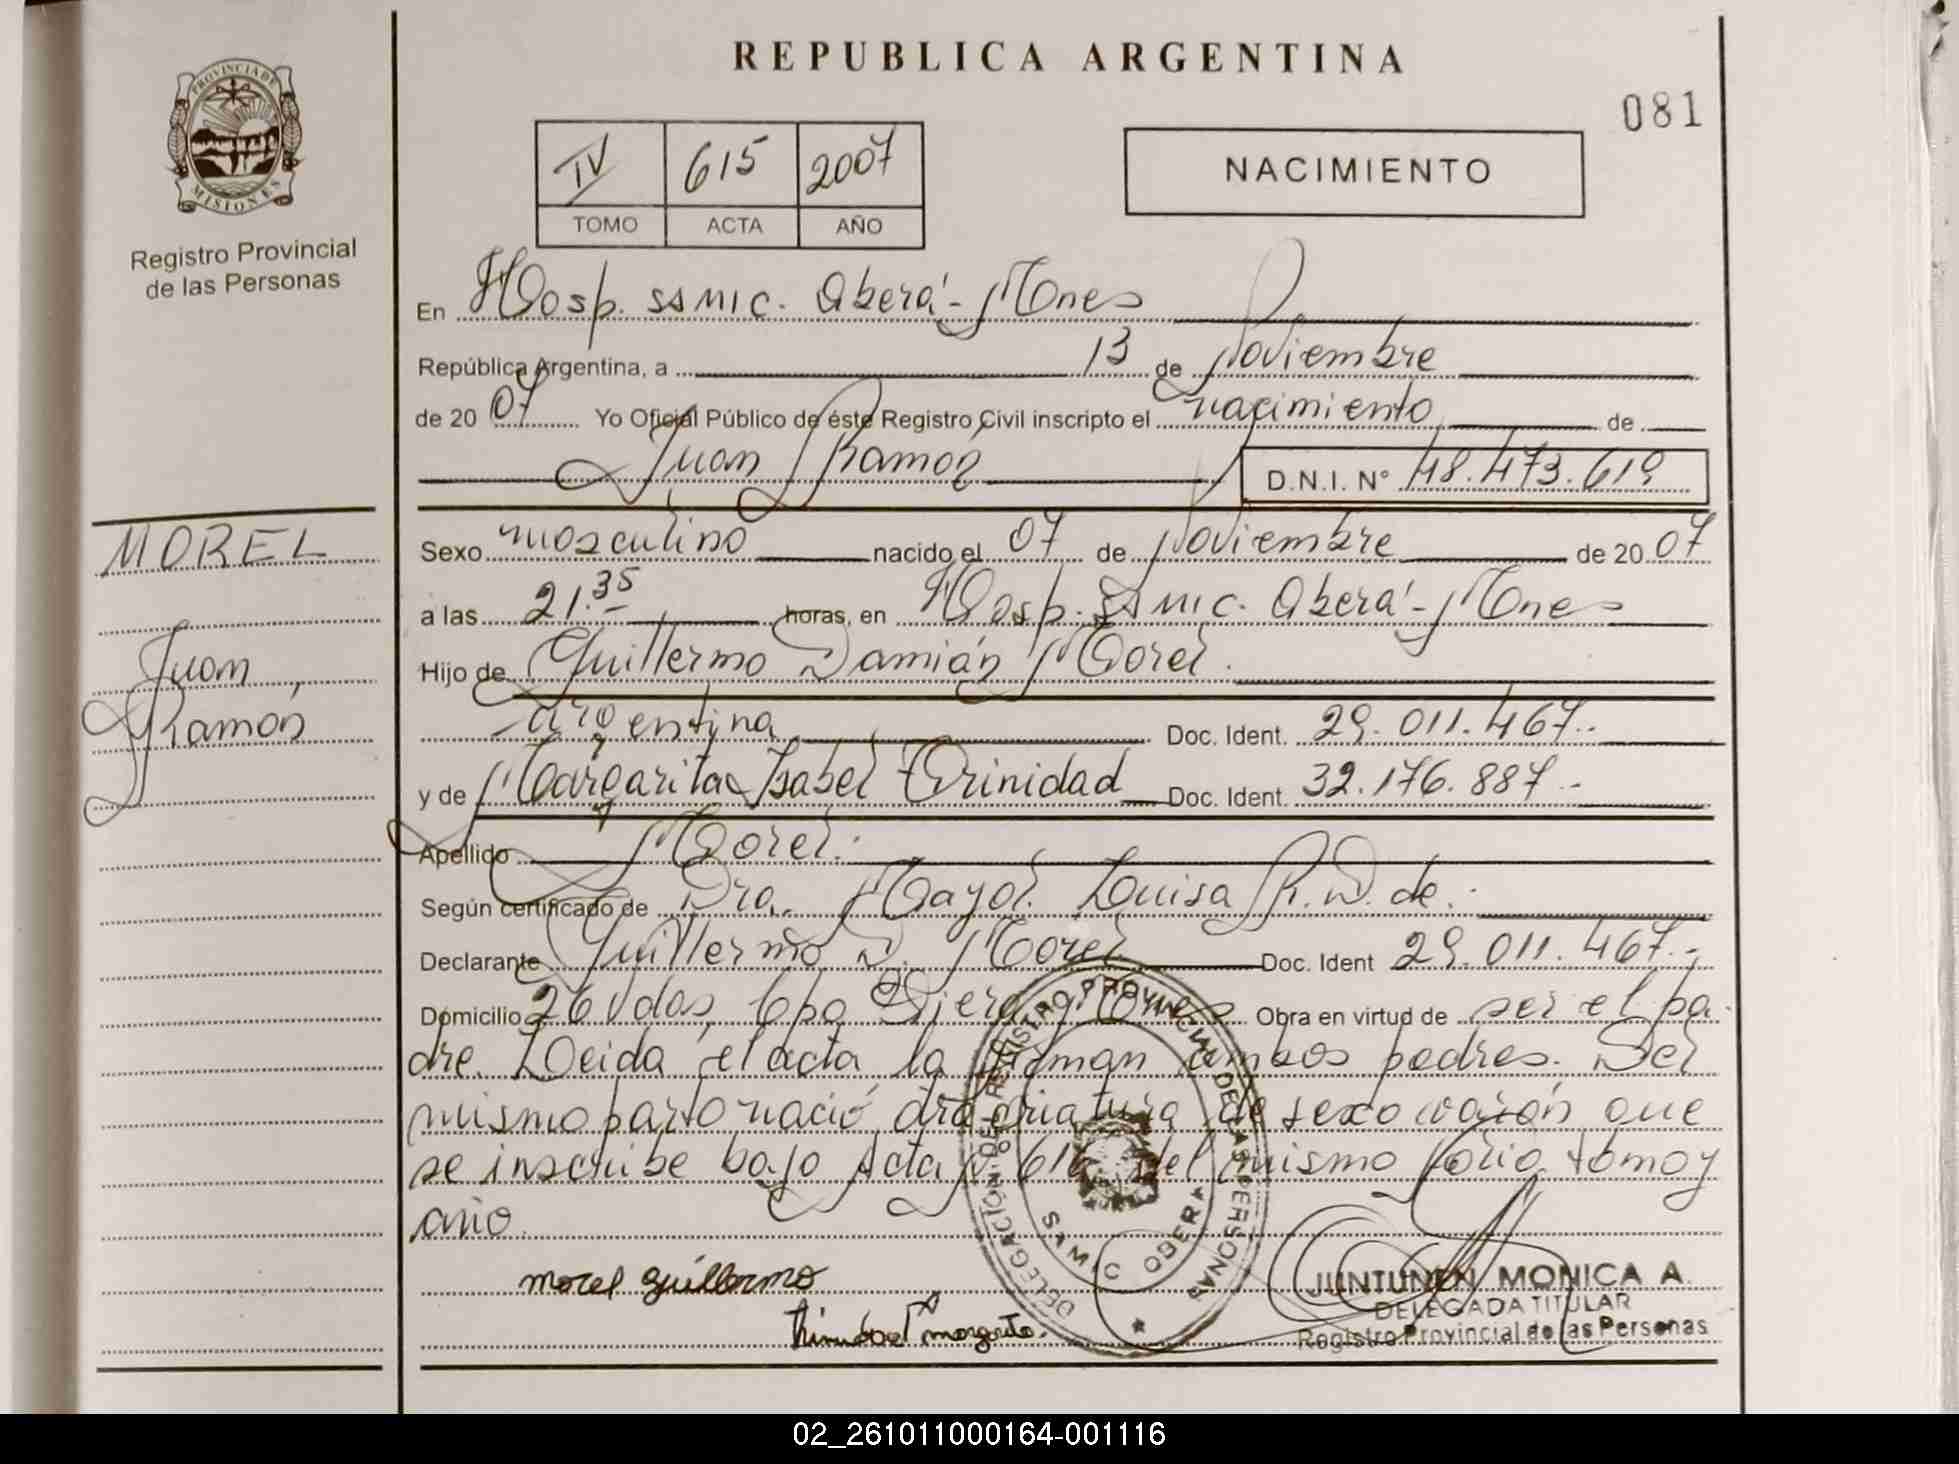 REPUBLICA ARGENTINA
081
PROVINCIA DE
MISIONES
Registro Provincial
de las Personas
IV 615 2007
TOMO ACTA AÑO
NACIMIENTO
En Hosp. SSMIC. Oberá - Mnes
República Argentina, a 13 de Noviembre
de 2007 Yo Oficial Público de éste Registro Civil inscripto el nacimiento de
Juan Ramón D.N.I. N° 48.473.619
MOREL
Juan
Ramón
Sexo masculino nacido el 07 de Noviembre de 2007
a las 21.35 horas, en Hosp. SSMIC. Oberá - Mnes
Hijo de Guillermo Damián Morel.
argentina Doc. Ident. 29.011.467.-
y de Margarita Isabel Trinidad Doc. Ident. 32.176.887.-
Apellido Morel.
Según certificado de Dra. Mayol Luisa R. D. de.
Declarante Guillermo D. Morel Doc. Ident 29.011.467.-
Domicilio Cpo Viera, Mnes Obra en virtud de ser el pa-
dre. Leida el acta la firman ambos padres. Del
mismo parto nació otra criatura de sexo varón que
se inscribe bajo Acta N° 616 del mismo folio, tomo y
año.
morel guillermo
margarita.
DELEGACIÓN DEL REGISTRO PROVINCIAL DE LAS PERSONAS
OBERA
JUNTUNEN MONICA A.
DELEGADA TITULAR
Registro Provincial de las Personas
02_261011000164-001116